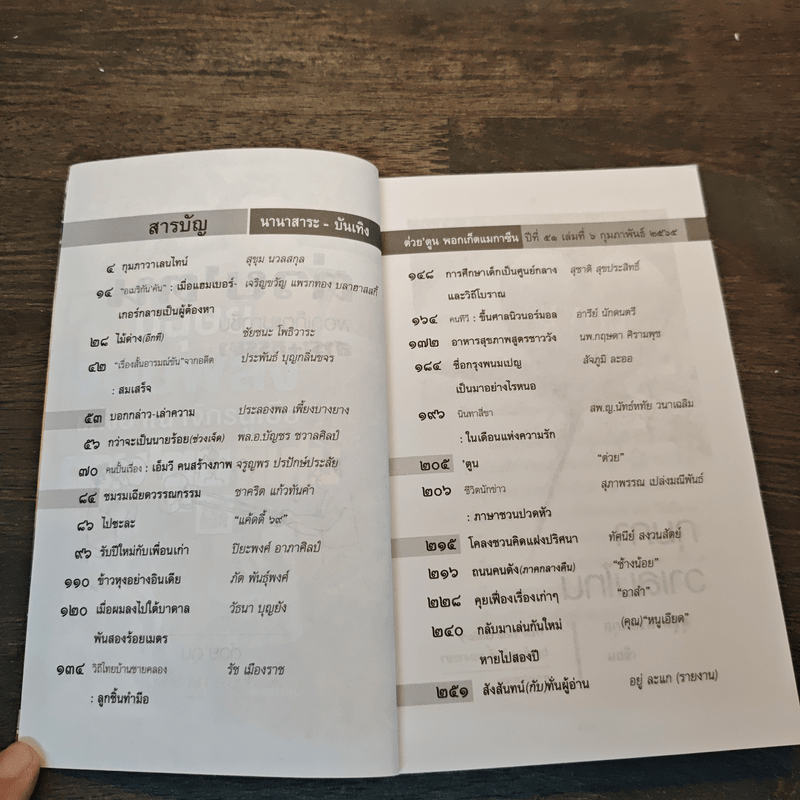 สารบัญ นานาสาระ - บันเทิง
๔ กุมภาวาเลนไทน์ สุขุม นวลสกุล
๑๔ "อเมริกัน'คัน" : เมื่อแฮมเบอร์- เจริญขวัญ แพรกทอง บลาฮาสสกี้
เกอร์กลายเป็นผู้ต้องหา
๒๘ ไม้ด่าง(อีกที) ชัยชนะ โพธิวาระ
๔๒ "เรื่องสั้นอารมณ์ขัน"จากอดีต ประพันธ์ บุญกลิ่นขจร
: สมเสร็จ
๕๓ บอกกล่าว-เล่าความ ประลองพล เพี้ยงบางยาง
๕๖ กว่าจะเป็นนายร้อย(ช่วงเจ็ด) พล.อ.บัญชร ชวาลศิลป์
๗๐ คนปั้นเรื่อง : เอ็มวี คนสร้างภาพ จรูญพร ปรปักษ์ประลัย
๘๔ ชมรมเฉียดวรรณกรรม ชาคริต แก้วทันคำ
๘๖ ไปซะละ "แค้ดดี้ ๖๙"
๙๖ รับปีใหม่กับเพื่อนเก่า ปิยะพงศ์ อาภาศิลป์
๑๑๐ ข้าวหุงอย่างอินเดีย ภัต พันธุ์พงศ์
๑๒๐ เมื่อผมลงไปใต้บาดาล วัธนา บุญยัง
พันสองร้อยเมตร
๑๓๔ วิถีไทยบ้านชายคลอง รัช เมืองราช
: ลูกชิ้นทำมือ
ต่วย'ตูน พอกเก็ตแมกาซีน ปีที่ ๕๑ เล่มที่ ๖ กุมภาพันธ์ ๒๕๖๕
๑๔๘ การศึกษาเด็กเป็นศูนย์กลาง สุชาติ สุขประสิทธิ์
และวิถีโบราณ
๑๖๔ คนทีวี : ขึ้นศาลนิวนอร์มอล อารีย์ นักดนตรี
๑๗๒ อาหารสุขภาพสูตรชาววัง นพ.กฤษดา ศิรามพุช
๑๘๔ ชื่อกรุงพนมเปญ สัจภูมิ ละออ
เป็นมาอย่างไรหนอ
๑๙๖ นินทาสี่ขา สพ.ญ.นัทธ์หทัย วนาเฉลิม
: ในเดือนแห่งความรัก
๒๐๕ 'ตูน "ต่วย"
๒๐๖ ชีวิตนักข่าว สุภาพรรณ เปล่งมณีพันธ์
: ภาษาชวนปวดหัว
๒๑๕ โคลงชวนคิดแฝงปริศนา ทัศนีย์ สงวนสัตย์
๒๑๖ ถนนคนดัง(ภาคกลางคืน) "ช้างน้อย"
๒๒๘ คุยเฟื่องเรื่องเก่าๆ "อาสำ"
๒๔๐ กลับมาเล่นกันใหม่ (คุณ)"หนูเอียด"
หายไปสองปี
๒๕๑ สังสันทน์(กับ)ทั่นผู้อ่าน อยู่ ละแก (รายงาน)